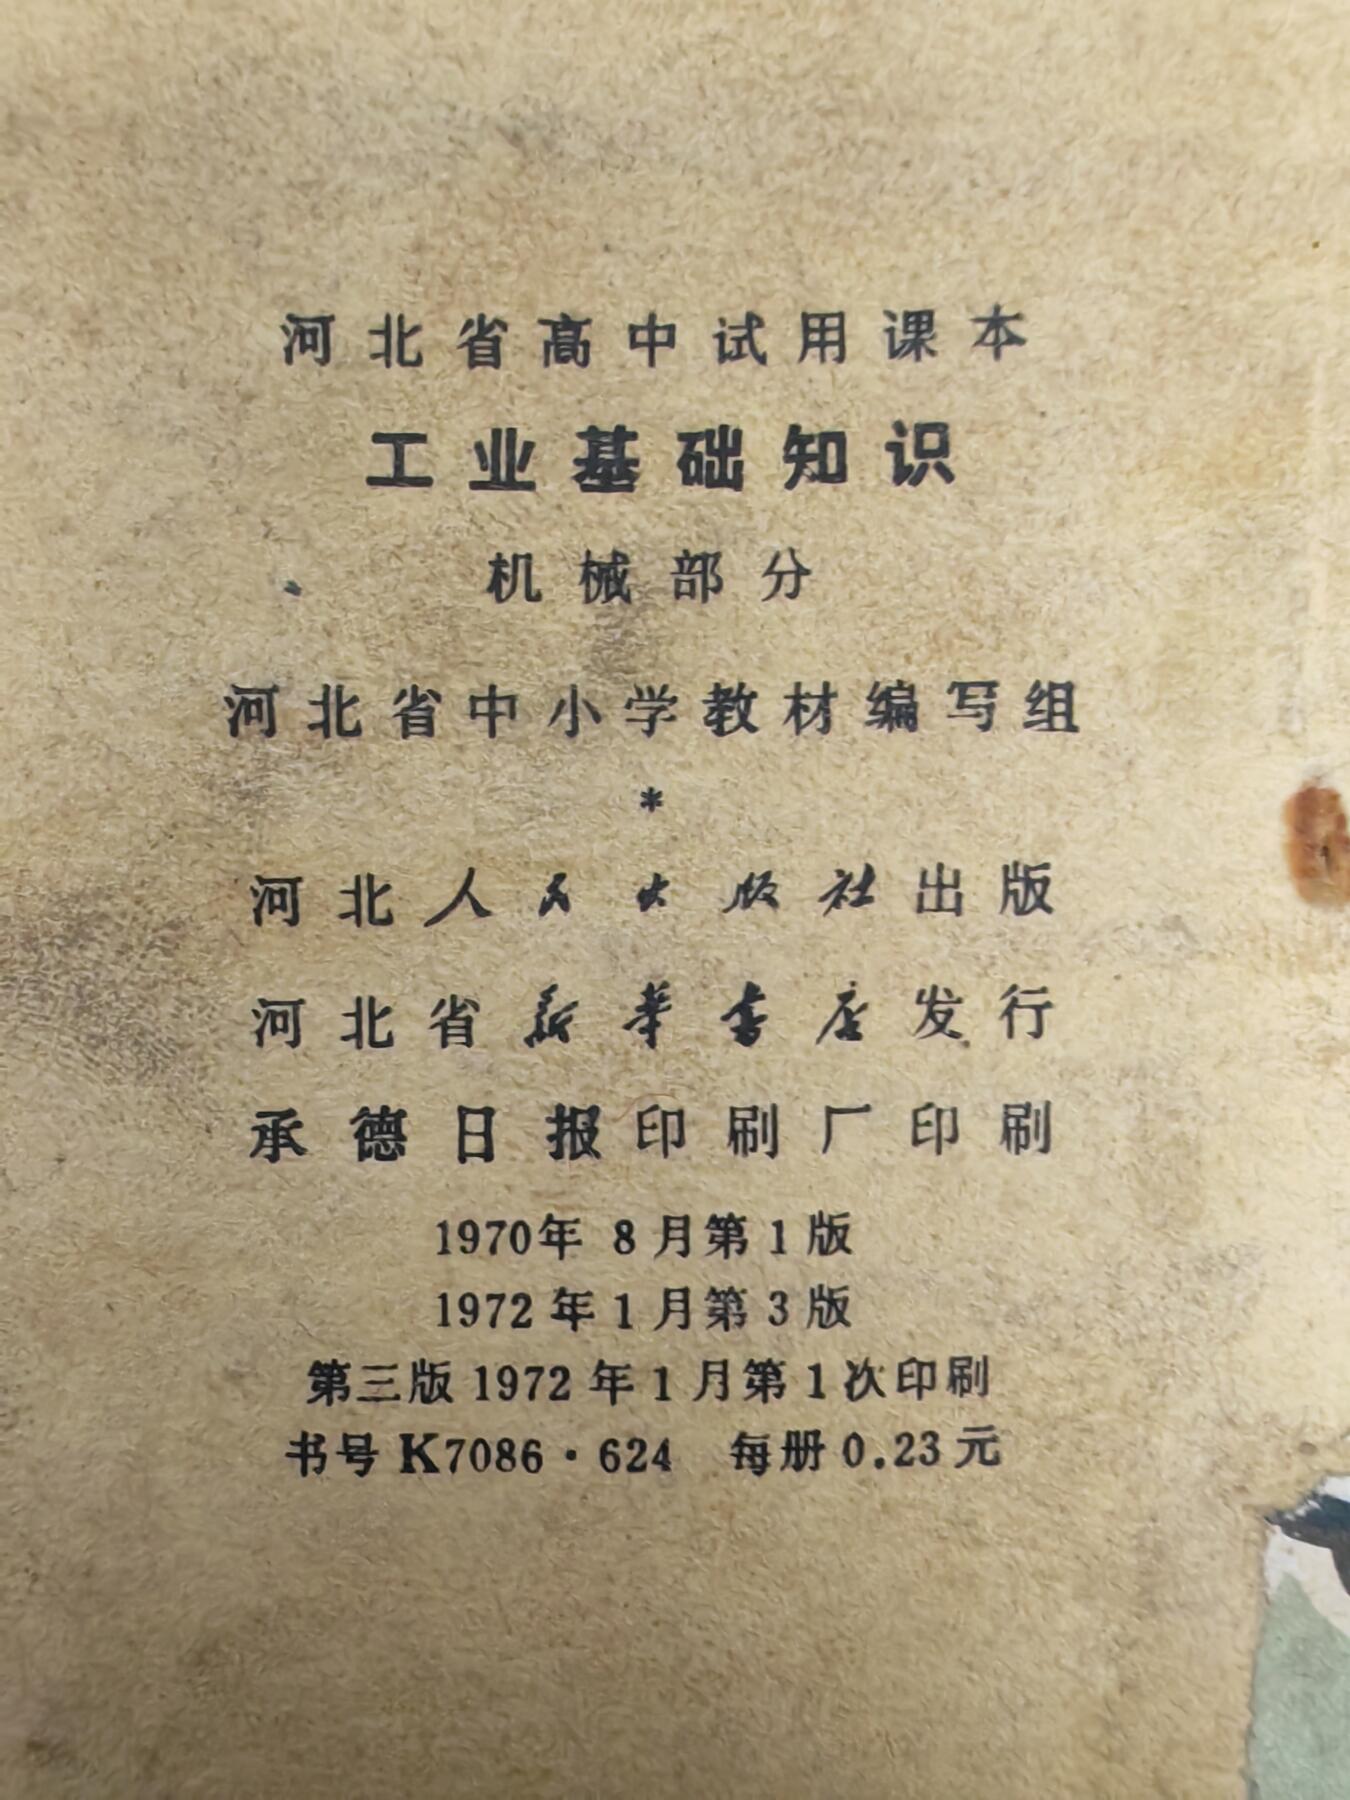 河北省高中试用课本
工业基础知识
机械部分
河北省中小学教材编写组
*
河北人民出版社出版
河北省新華書店发行
承德日报印刷厂印刷
1970年 8月第1版
1972年1月第3版
第三版1972年1月第1次印刷
书号K7086·624 每册0.23元